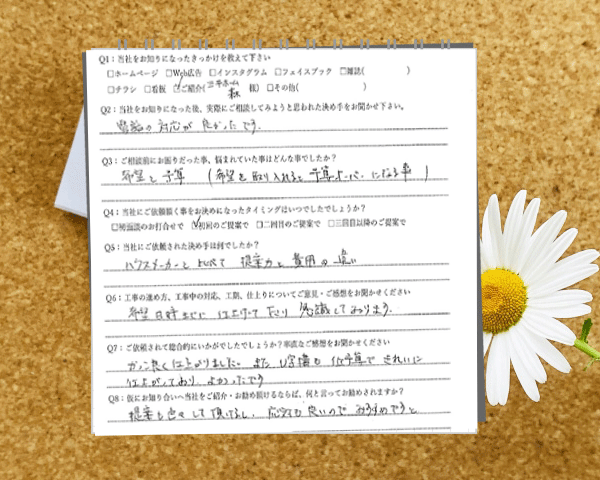 Q1：当社をお知りになったきっかけを教えて下さい
□ホームページ □Web広告 □インスタグラム □フェイスブック □雑誌( )
□チラシ □看板 ☑ご紹介( 様) □その他( )
Q2：当社をお知りになった後、実際にご相談してみようと思われた決め手をお聞かせ下さい。
電話の対応が良かったです.
Q3：ご相談前にお困りだった事、悩まれていた事はどんな事でしたか？
希望と予算 (希望を取り入れると予算オーバーになる事)
Q4：当社にご依頼頂く事をお決めになったタイミングはいつでしたでしょうか？
□初面談のお打合せで ☑初回のご提案で □二回目のご提案で □三回目以降のご提案で
Q5：当社にご依頼された決め手は何でしたか？
ハウスメーカーと比べて 提案力と費用の違い
Q6：工事の進め方、工事中の対応、工期、仕上りについてご意見・ご感想をお聞かせください
希望日時までに仕上げて下さり 感謝しております.
Q7：ご依頼されて総合的にいかがでしたでしょうか？率直なご感想をお聞かせください
カッコ良く仕上りました。また、U字溝も低予算できれいに
仕上がっており、よかったです
Q8：仮にお知り合いへ当社をご紹介・お勧め頂けるならば、何と言ってお勧めされますか？
提案も色々して頂けるし、対応も良いので おすすめですと